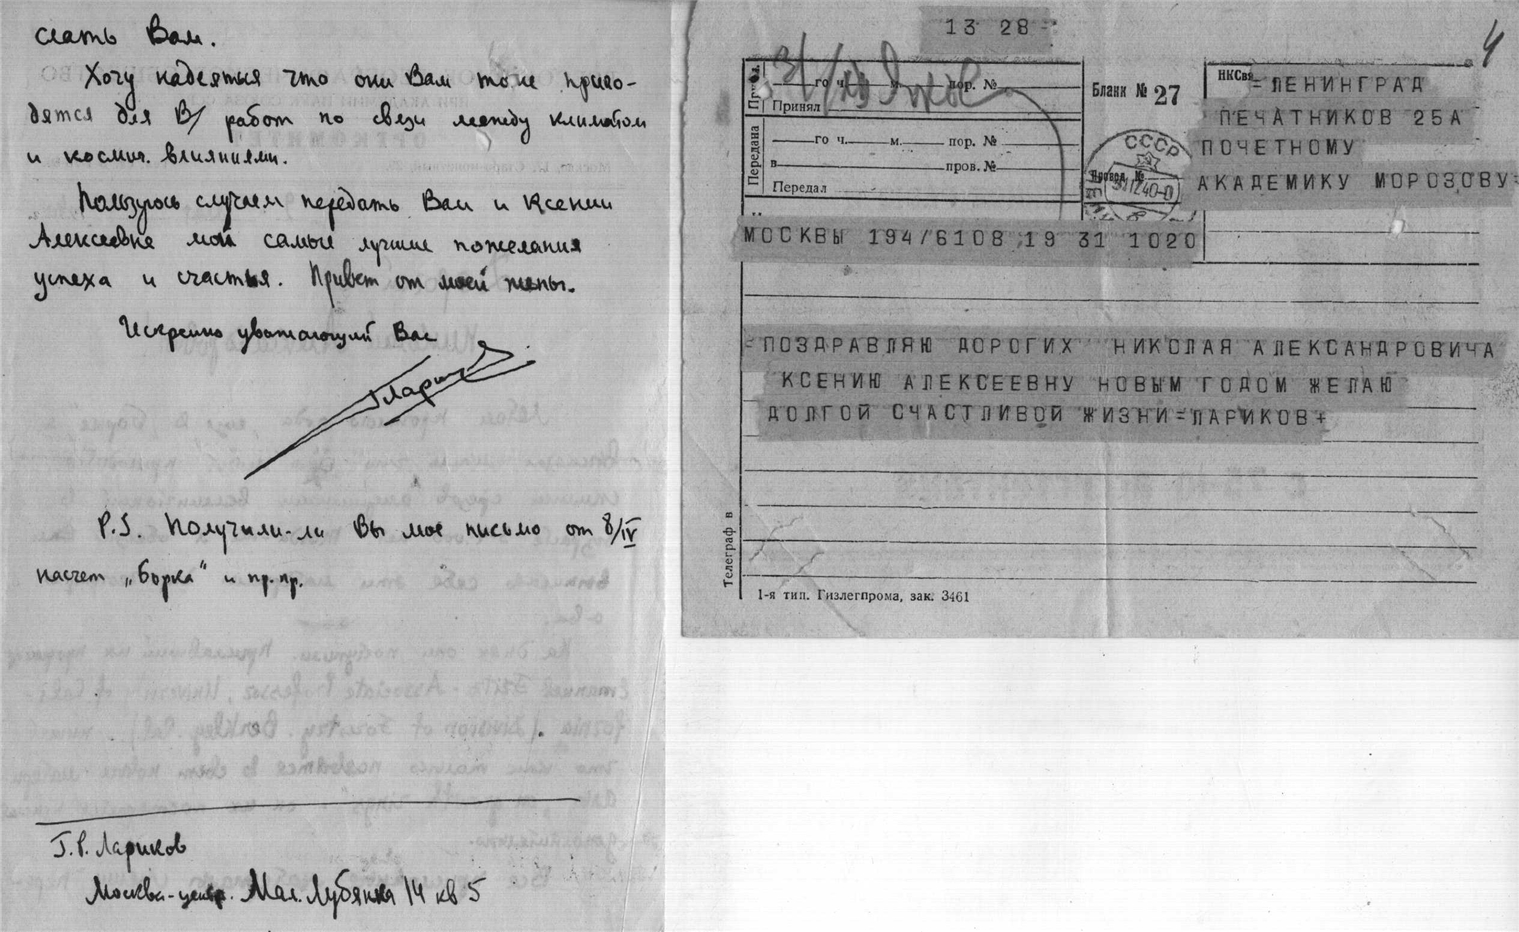 слать Вам.
Хочу надеяться что они Вам тоже приго-
дятся для В/ работ по связи между климатом
и космич. влияниями.
Пользуюсь случаем передать Вам и Ксении
Алексеевне мои самые лучшие пожелания
успеха и счастья. Привет от моей жены.
Искренно уважающий Вас
ГЛарик
P.S. Получили-ли Вы мое письмо от 8/IV
насчет „Борка" и пр. пр.
Г.Р. Лариков
Москва-центр. Мал. Лубянка 14 кв 5
13 28
4
го ч. м. пор. №
Принял
Передана
го ч. м. пор. №
в пров. №
Передал
Бланк № 27
СССР
НКСвязи
=ЛЕНИНГРАД
ПЕЧАТНИКОВ 25А
ПОЧЕТНОМУ
АКАДЕМИКУ МОРОЗОВУ=
МОСКВЫ 194/6108 19 31 1020
=ПОЗДРАВЛЯЮ ДОРОГИХ НИКОЛАЯ АЛЕКСАНДРОВИЧА
КСЕНИЮ АЛЕКСЕЕВНУ НОВЫМ ГОДОМ ЖЕЛАЮ
ДОЛГОЙ СЧАСТЛИВОЙ ЖИЗНИ=ЛАРИКОВ+
Телеграф в
1-я тип. Гизлегпрома, зак. 3461